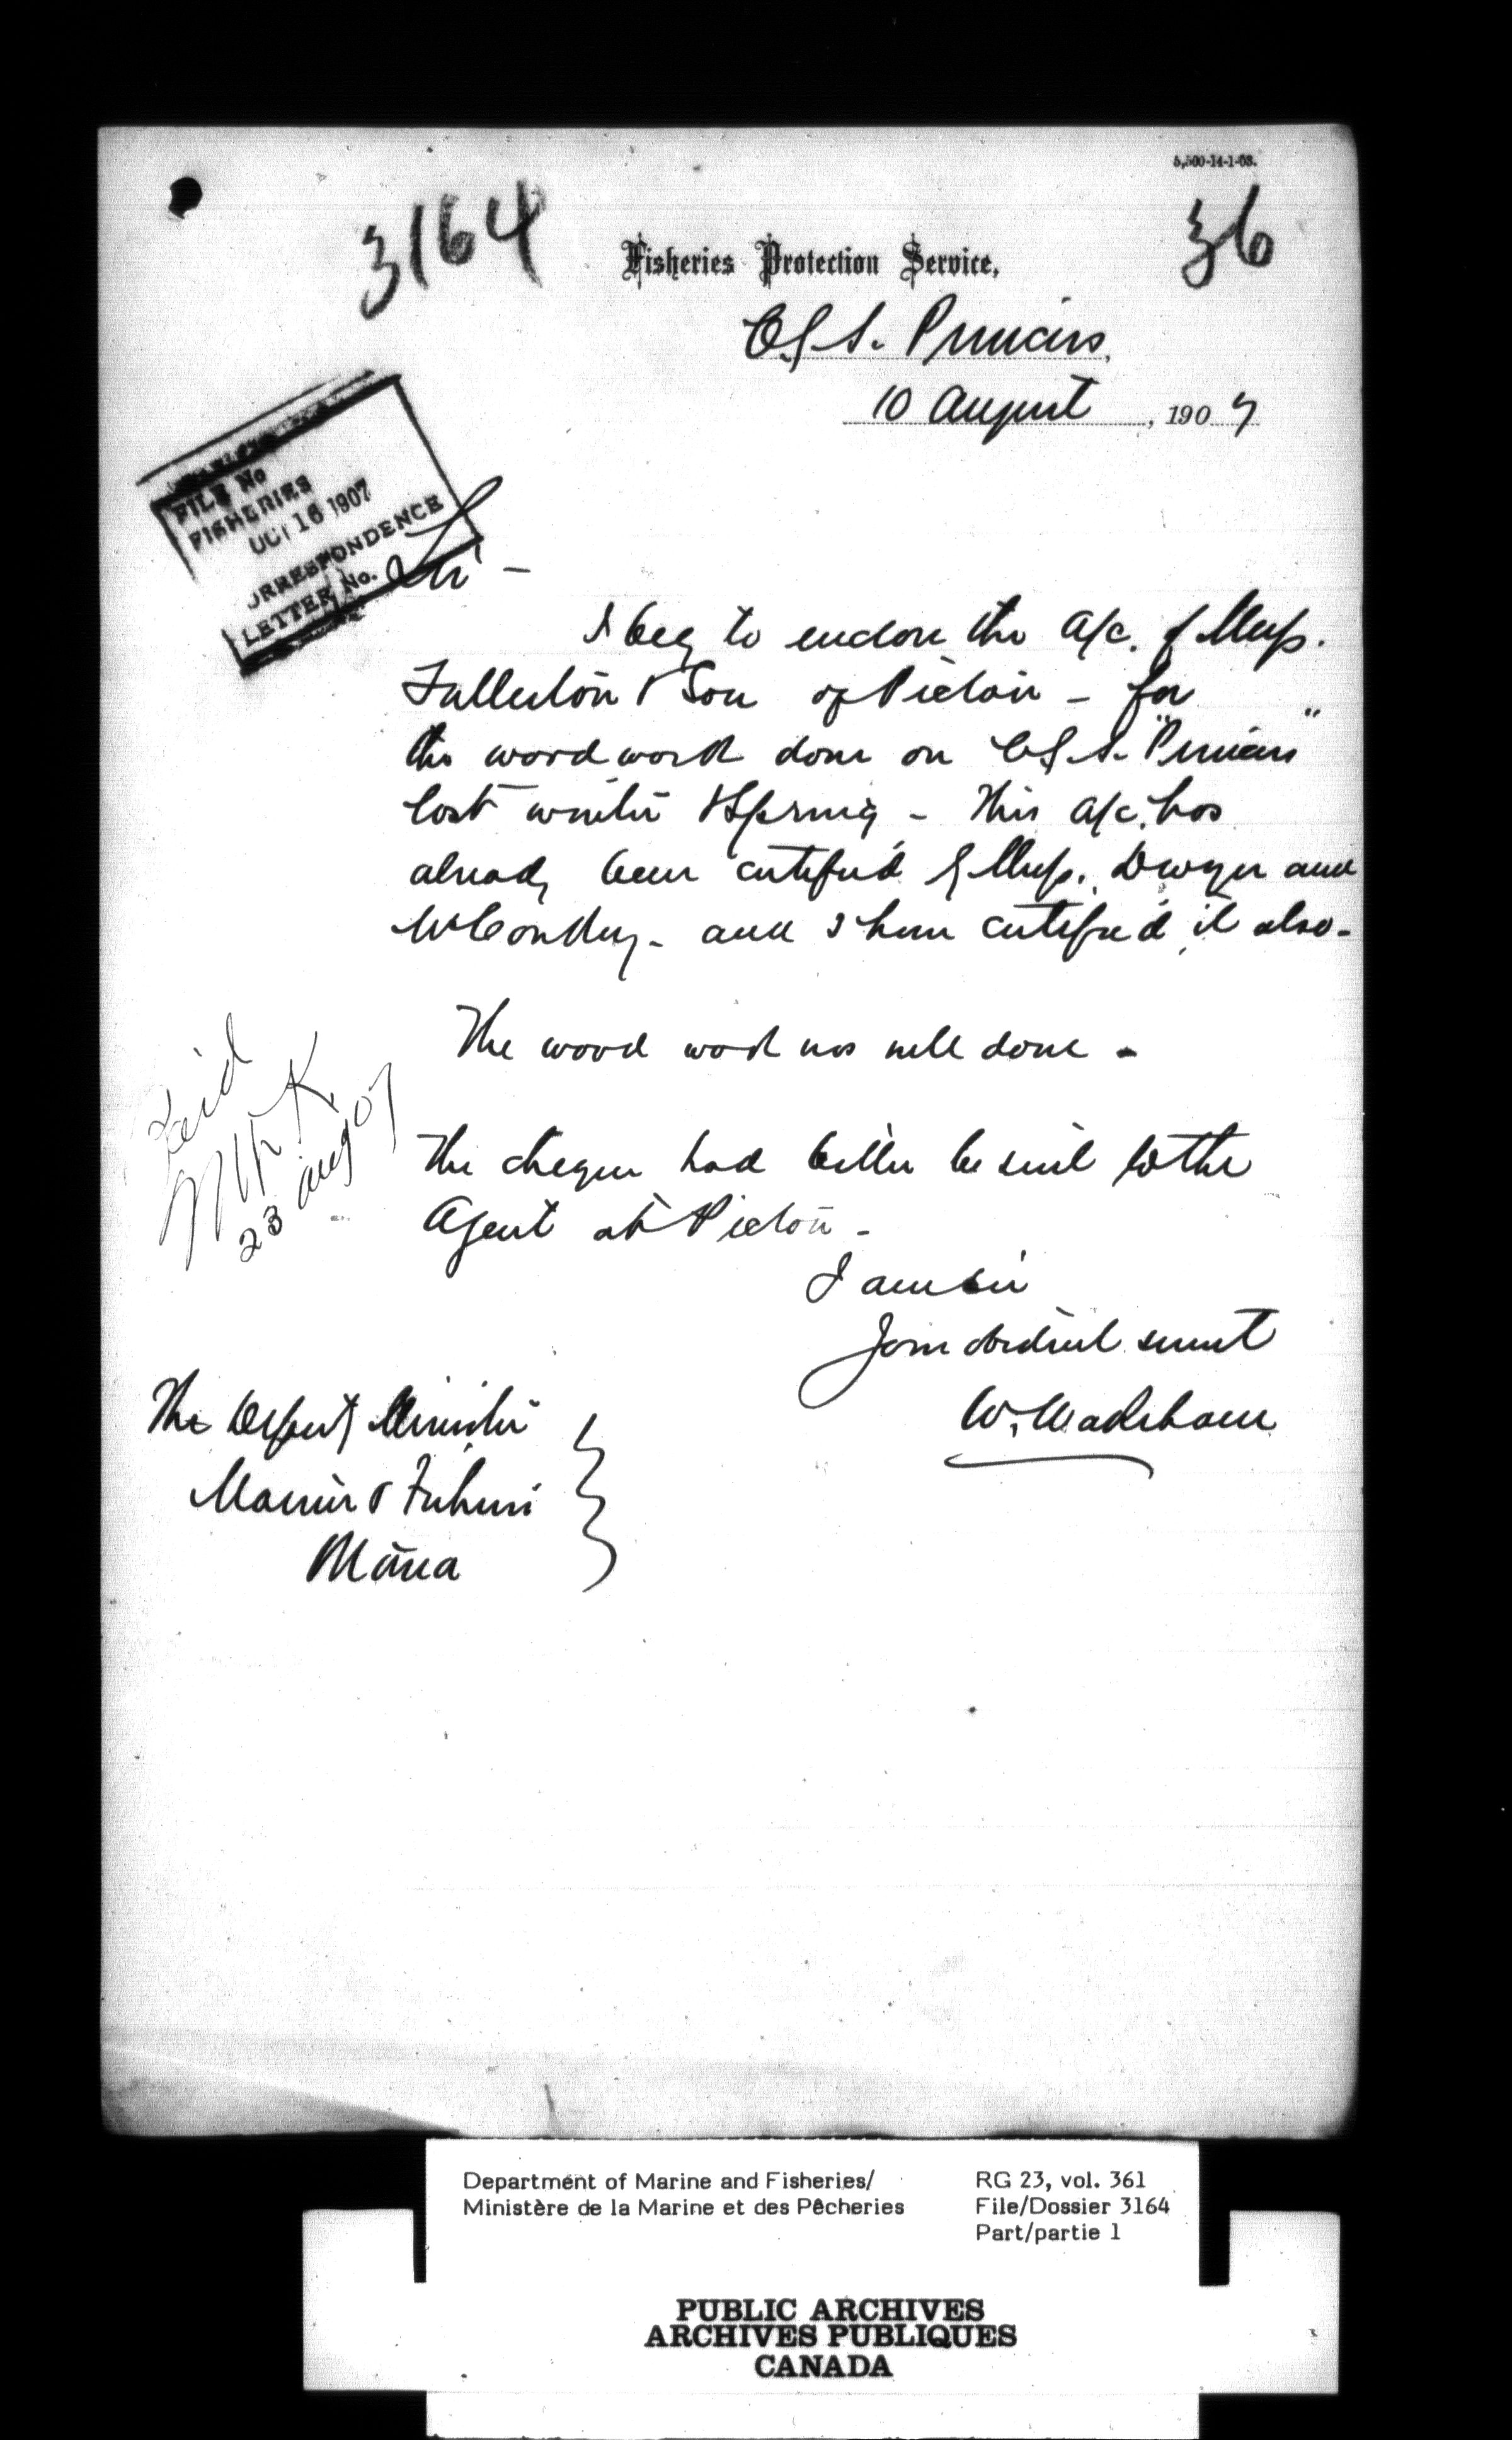 5,500-14-1-03.
3164
36
Fisheries Protection Service,
C.G.S. Princess,
10 August, 1907
FILE No
FISHERIES
OCT 16 1907
ORRESPONDENCE
LETTER No.
Sir -
I beg to enclose the a/c. of Messrs.
Fullerton & Son of Pictou - for
the wood work done on C.G.S. "Princess"
last winter & Spring - This a/c. has
already been certified by Messrs. Dwyer and
and I have certified it also -
The wood work was well done -
The cheque had better be sent to the
Agent at Pictou -
I am Sir
Your obedient servant
W. Wakeham
Paid
23 Aug 07
The Deputy Minister
Marine & Fisheries
Ottawa
Department of Marine and Fisheries/
Ministère de la Marine et des Pêcheries
RG 23, vol. 361
File/Dossier 3164
Part/partie 1
PUBLIC ARCHIVES
ARCHIVES PUBLIQUES
CANADA